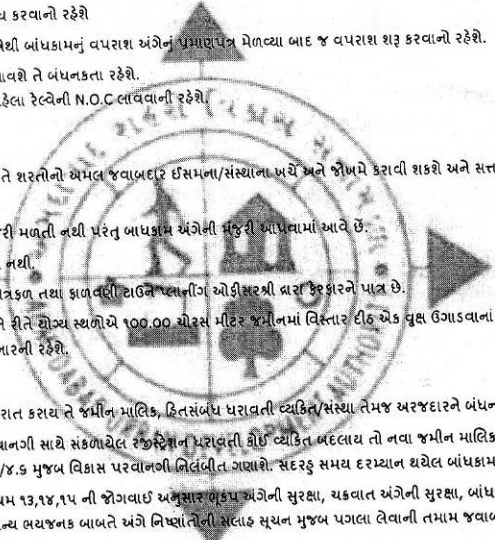 કરવાનો રહેશે
બાંધકામનું વપરાશ અંગેનું પ્રમાણપત્ર મેળવ્યા બાદ જ વપરાશ શરૂ કરવાનો રહેશે.
તે બંધનકતા રહેશે.
રેલ્વેની N.O.C લાવવાની રહેશે.
તે શરતોનો અમલ જવાબદાર ઈસમના/સંસ્થાના ખર્ચે અને જોખમે કરાવી શકશે અને
મળતી નથી પરંતુ બાધકામ અંગેની મંજુરી આપવામાં આવે છે.
નથી.
તથા ફાળવણી ટાઉન પ્લાનીંગ ઓફીસરશ્રી દ્વારા ફેરફારને પાત્ર છે.
રીતે યોગ્ય સ્થળોએ 100.00 ચોરસ મીટર જમીનમાં વિસ્તાર દીઠ એક વૃક્ષ ઉગાડવાનાં
રહેશે.
કરાય તે જમીન માલિક, હિતસંબંધ ધરાવતી વ્યકિત/સંસ્થા તેમજ અરજદારને
સાથે સંકળાયેલ રજીસ્ટ્રેશન ધરાવતી કોઈ વ્યકિત બદલાય તો નવા જમીન માલિક
/૪.૬ મુજબ વિકાસ પરવાનગી નિલંબીત ગણાશે. સદરહુ સમય દરમ્યાન થયેલ બાંધકામ
૧૩,૧૪,૧૫ ની જોગવાઈ અનુસાર ભૂકંપ અંગેની સુરક્ષા, ચક્રવાત અંગેની સુરક્ષા,
ભયજનક બાબતે અંગે નિષ્ણાંતોની સલાહ સૂચન મુજબ પગલા લેવાની તમામ